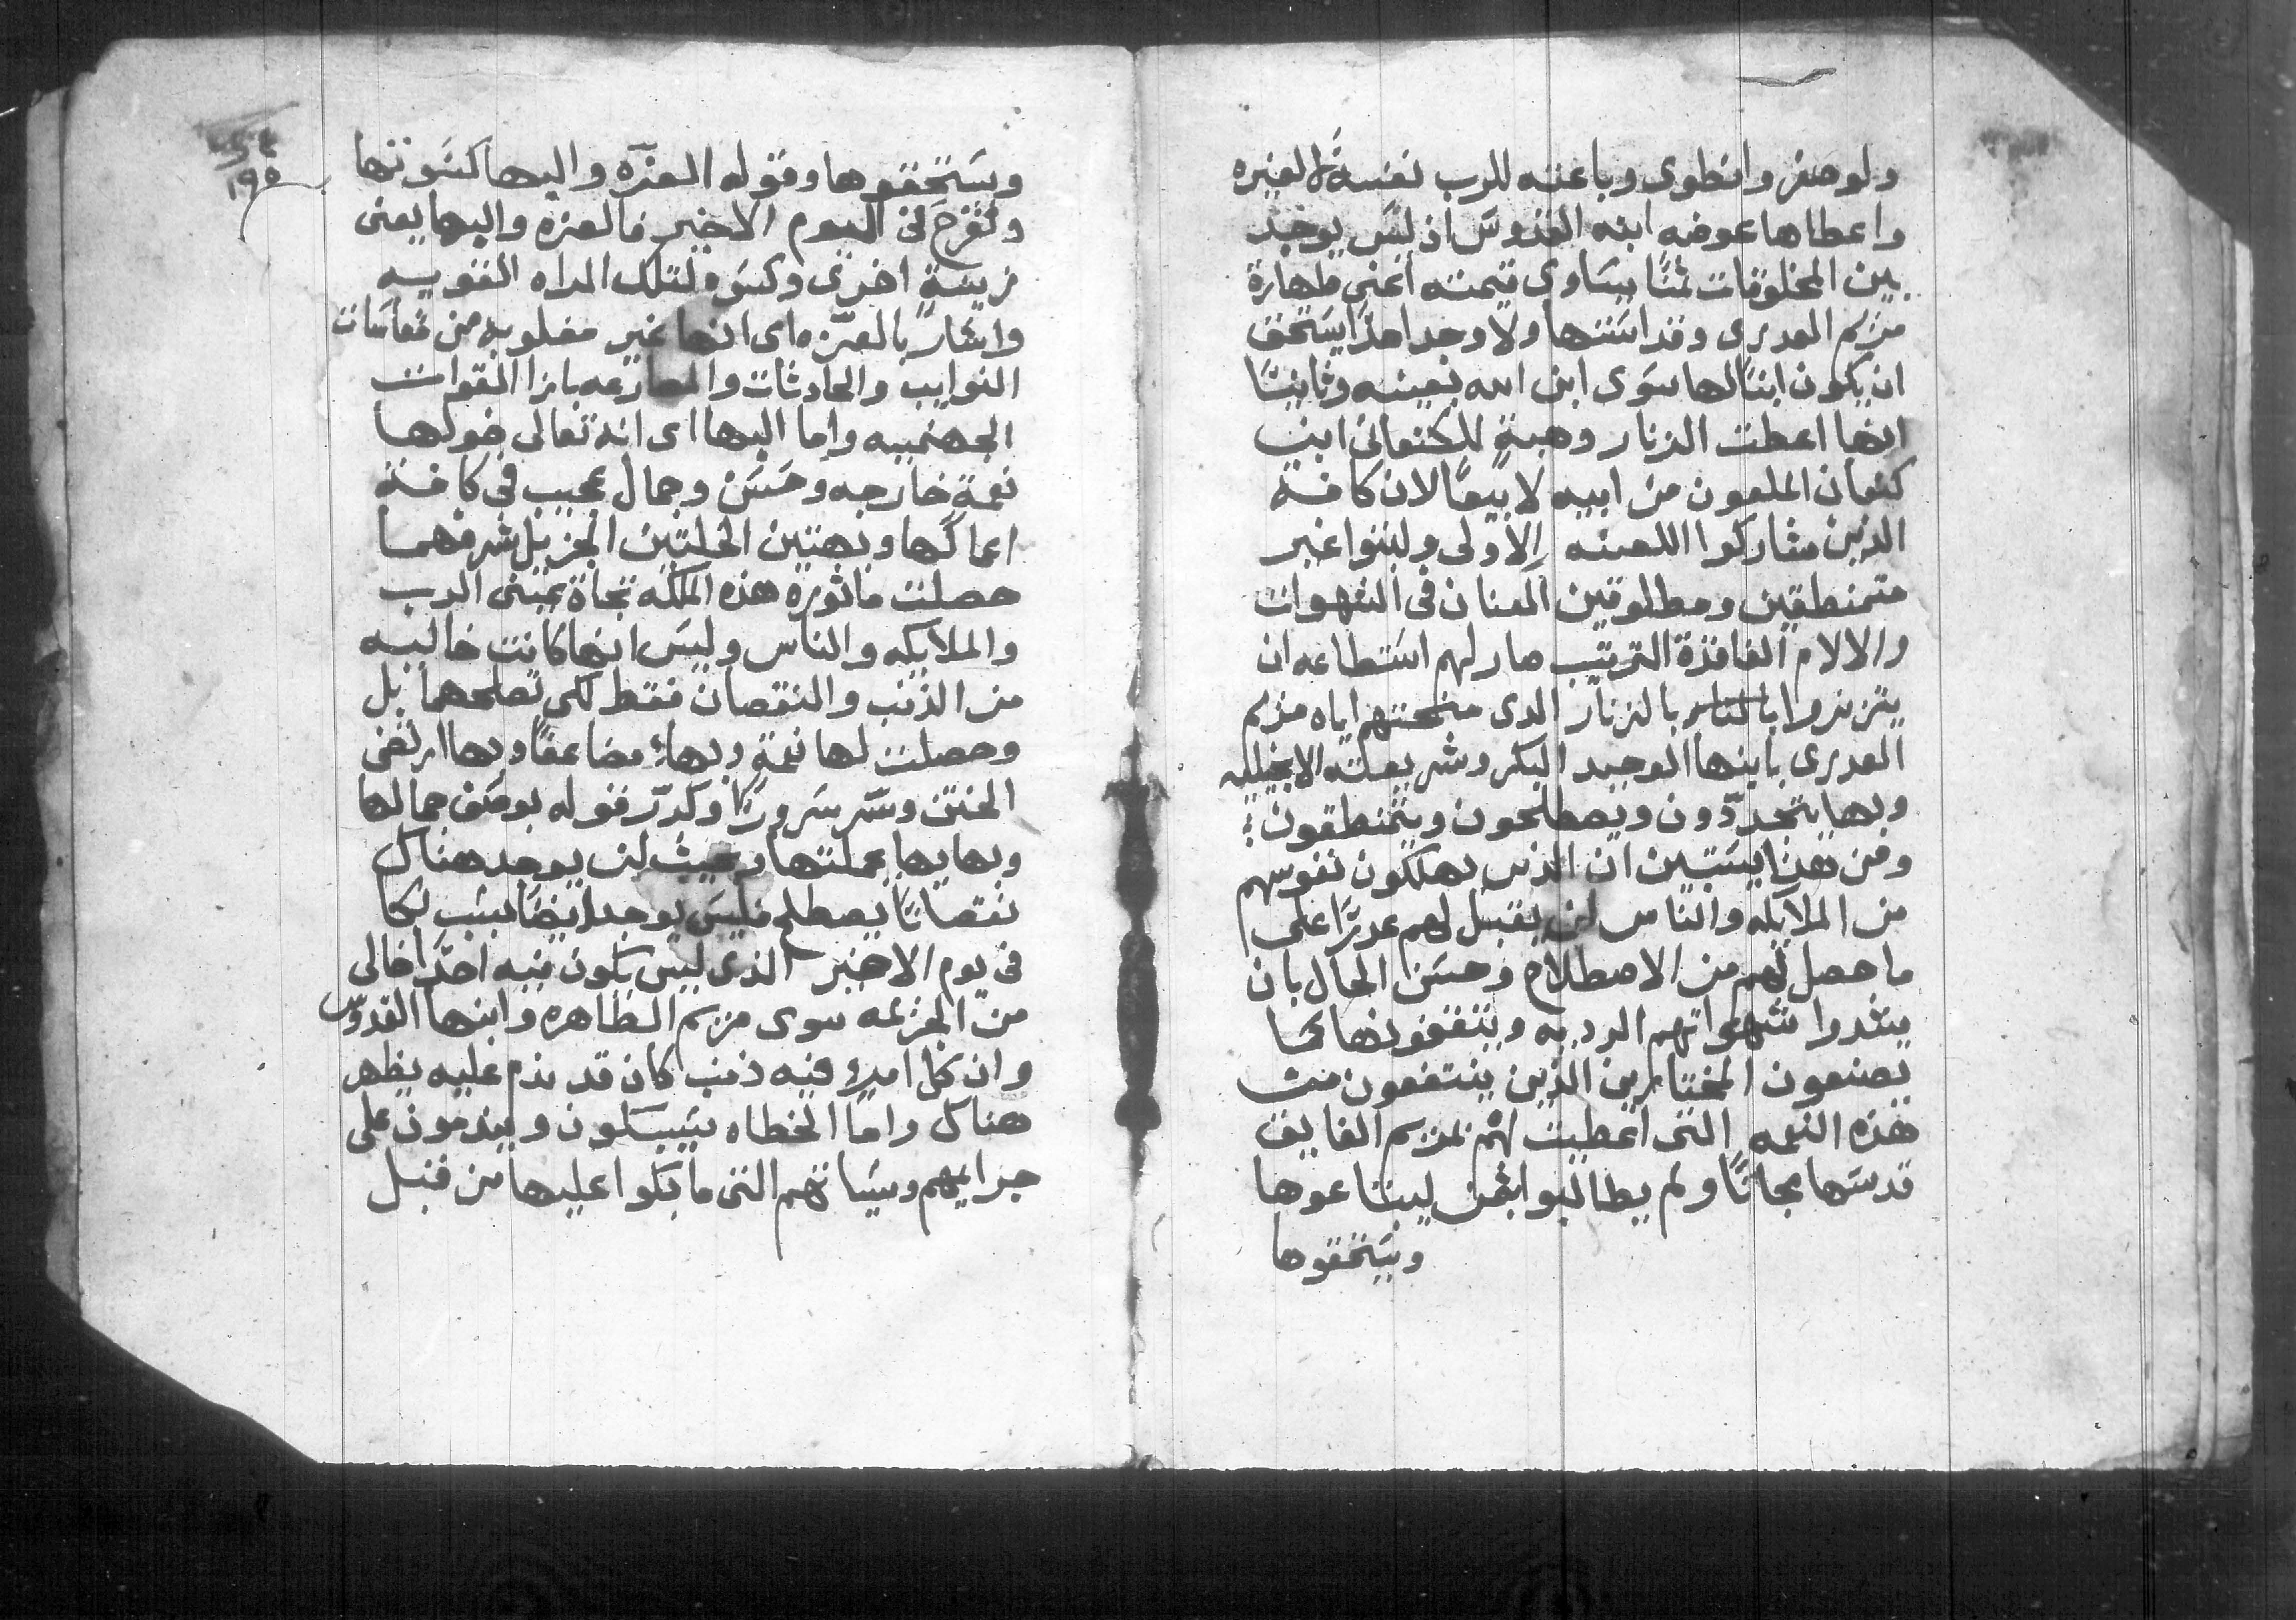 ولو صغر وانطوى وباعته للرب نفسه لا لغيره
واعطاها عوضه ابنه القدوس اذ ليس يوجد
بين المخلوقات ثمنًا يساوى قيمته اعنى طهارة
مريم العدرى وقداستها ولا وجد احدًا يستحق
ان يكون ابنًا لها سوى ابن الله بعينه وثانيًا
انها اعطت الزنار وهبةٍ للكنعانى ابن
كنعان الملعون من ابيه لا بيعًا لان كافة
الذين شاركوا اللعنه الاولى ولبثوا غير
متمنطقين ومطلوقين العنان فى الشهوات
والالام الفاقدة الترتيب صار لهم استطاعه ان
يتزنروا بالزنار الدى منحتهم اياه مريم
العدرى بابنها الوحيد البكر وشريعته الانجيليه
وبها يتجددّون ويصطلحون ويتمنطقون:
ومن هدا يستبين ان الذين يهلكون نفوسهم
من الملايكه والناس لن يقبل لهم عدرًا على
ما حصل لهم من الاصطلاح وحسن الحال بان
يشدوا شهواتهم الرديه ويتقفونها كما
يصنعون المختارين الذين ينتفعون من
هذه النعمه التى اعطيت لهم بمريم الفايق
قدسها مجانًا ولم يطالبوا بثمن ليبتاعوها
ويستحقوها
١٩٥
ويستحقوها وقوله العزّه والبها كسوتها
وتفرح فى اليوم الاخير فالعزه والبها يعنى
زينةٍ اخرى وكسوه لتلك المراه القويه
واشار بالعزّه اى انها غير مغلوبه من مقاسات
النوايب والحادثات والمصارعه بازا القوات
الجهنميه واما البها اى انه تعالى خولها
نعمةٍ خارجه وحسَن وجمال عجيب فى كافة
اعمالها وبهتين الخلتين الجزيل شرفهما
حصلت ماثوره هذه الملكه تجاة عينى الرب
والملايكه والناس وليس انها كانت خاليه
من الذنب والنقصان فقط لكى تصلحهما بل
وحصلت لها نعمةٍ وبهاءٍ مضاعفًا وبها ارتضى
الختن وسّر سرورًا وكرّر قوله بوصف جمالها
وبهايها بجملتها وبحيث لن يوجد هناك
نقصانًا يصطلح فليس يوجد ايضًا سبب لبكا
فى يوم الاخير الذى ليس يكون فيه احدًا خالى
من الجزيمه سوى مريم الطاهره وابنها القدوّس
وان كل امرءٍ فيه ذنب كان قد ندم عليه يظهر
هناك واما الخطاه يبسكون ويندمون على
جرايمهم وسياتهم التى ما بكوا عليها من قبل